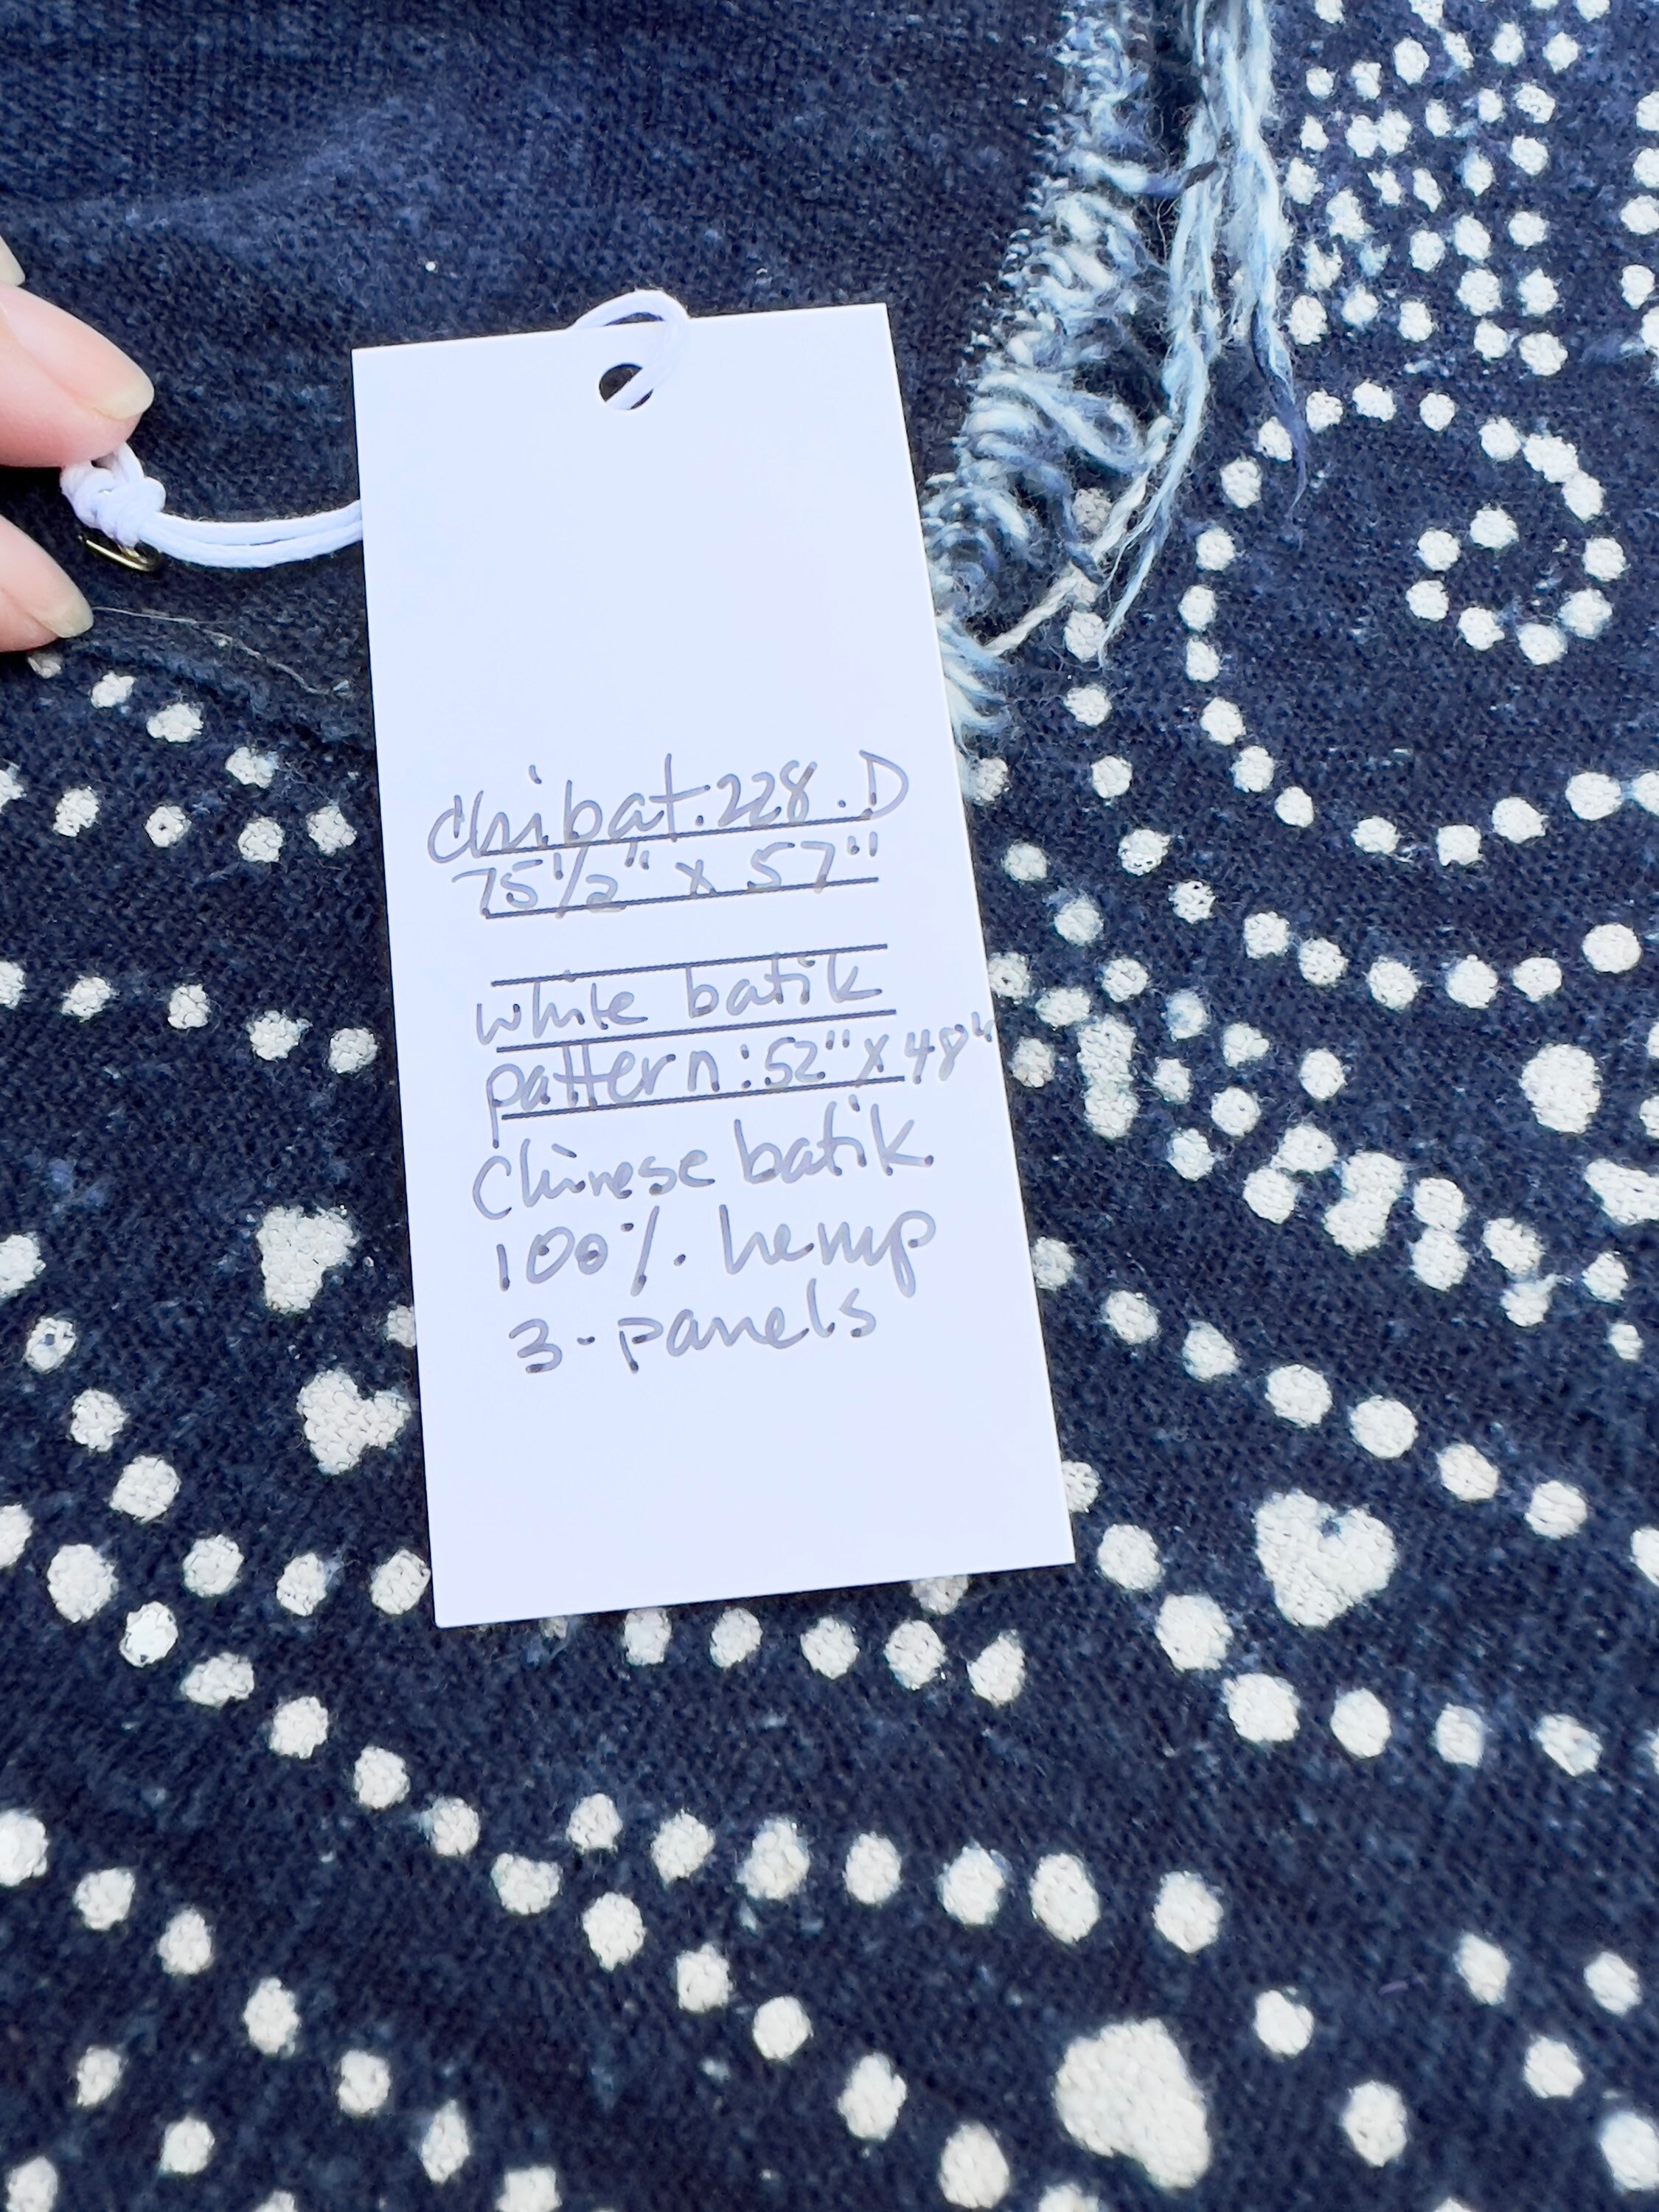 chibat.228.D
75 1/2" x 57"
white batik
pattern: 52" x 48"
Chinese batik
100% hemp
3-panels